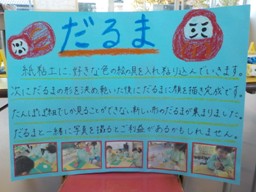 だるま
紙粘土に、好きな色の絵の具を入れねりこんでいきます。
次にだるまの形を決め乾いた後にだるまに顔を描き完成です。
たんぽぽ組でしか見ることができない新しい形のだるまが集まりました。
だるまと一緒に写真を撮るとご利益があるかもしれません。